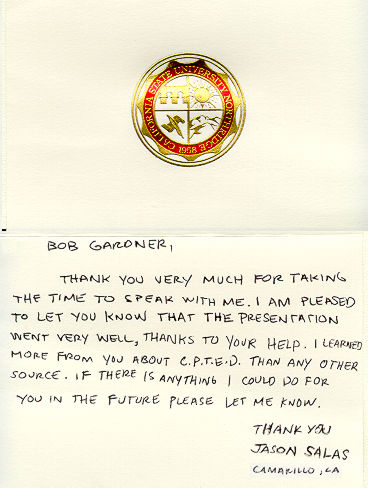 CALIFORNIA STATE UNIVERSITY NORTHRIDGE
1958
BOB GARDNER,
THANK YOU VERY MUCH FOR TAKING
THE TIME TO SPEAK WITH ME. I AM PLEASED
TO LET YOU KNOW THAT THE PRESENTATION
WENT VERY WELL, THANKS TO YOUR HELP. I LEARNED
MORE FROM YOU ABOUT C.P.T.E.D. THAN ANY OTHER
SOURCE. IF THERE IS ANYTHING I COULD DO FOR
YOU IN THE FUTURE PLEASE LET ME KNOW.
THANK YOU
JASON SALAS
CAMARILLO, CA